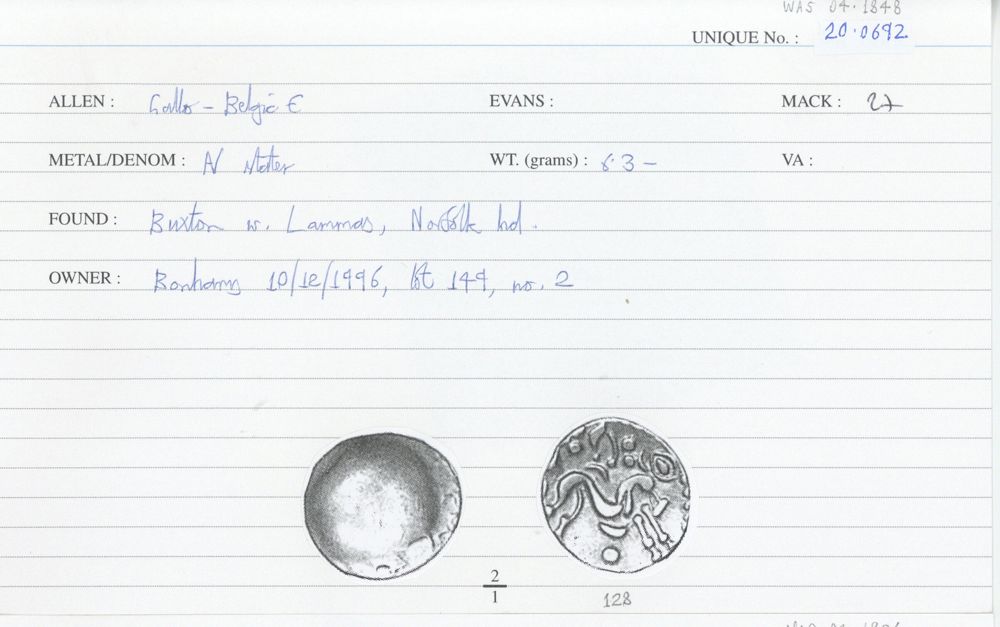 WAS 04.1848
UNIQUE No. : 20.0692
ALLEN : Gallo-Belgic E EVANS : MACK : 27
METAL/DENOM : N Stater WT. (grams) : 6.3- VA :
FOUND : Buxton w. Lammas, Norfolk
OWNER : Bonhams 10/12/1996, lot 144, no. 2
2
1
128